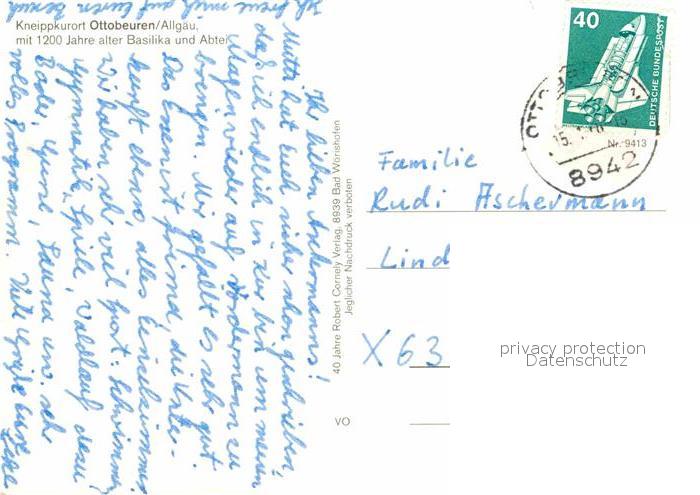 Ich freue mich auf Euren Besuch
Kneippkurort Ottobeuren/Allgäu,
mit 1200 Jahre alter Basilika und Abtei
Ihr lieben Aschermanns!
Mutti hat Euch sicher schon geschrieben,
daß ich endlich in Kur bin um mein
Magen wieder auf Vordermann zu
bringen. Mir gefällt es sehr gut
Das Essen ist prima, die Unter-
kunft ebenso, alles Einzelzimmer
Wir haben sehr viel Sport. Schwimmen
Gymnastik, Spiele, dazu
Bäder, Sauna usw. sehr
volles Programm. Viele Grüße Eure
40 Jahre Robert Cornely Verlag, 8939 Bad Wörishofen
Jeglicher Nachdruck verboten
40
DEUTSCHE BUNDESPOST
8942
Nr. 9413
Familie
Rudi Aschermann
Lind
X 63
VO
privacy protection
Datenschutz